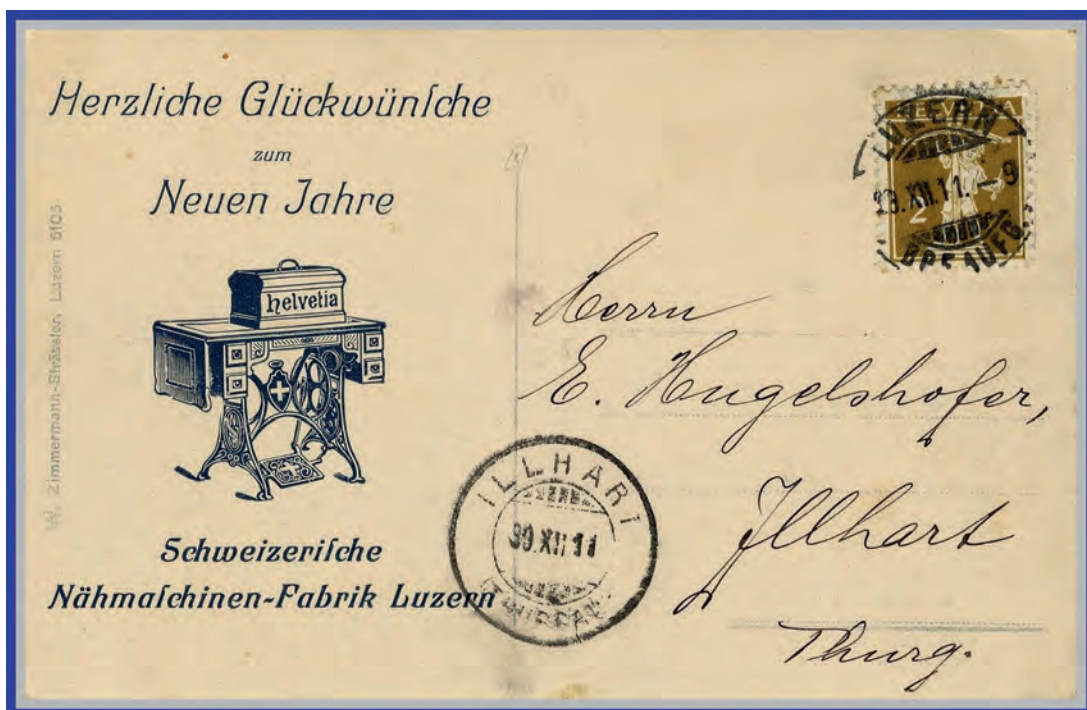 Herzliche Glückwünſche
zum
Neuen Jahre
helvetia
Schweizeriſche
Nähmaſchinen-Fabrik Luzern
W. Zimmermann-Strässler, Luzern 6103
HELVETIA
2
LUZERN
29.XII.11.–9
ILLHART
30.XII 11
Herrn
E. Hugelshofer,
Illhart
Thurg.